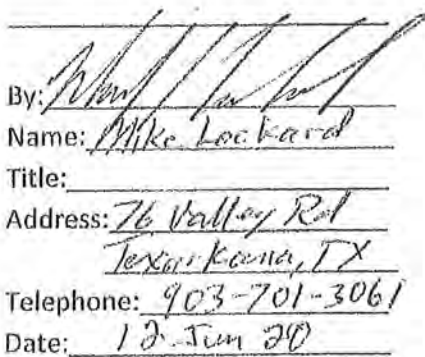 By:
Name: Mike Lockard
Title:
Address: 76 Valley Rd
Texarkana, TX
Telephone: 903-701-3061
Date: 12 Jun 20